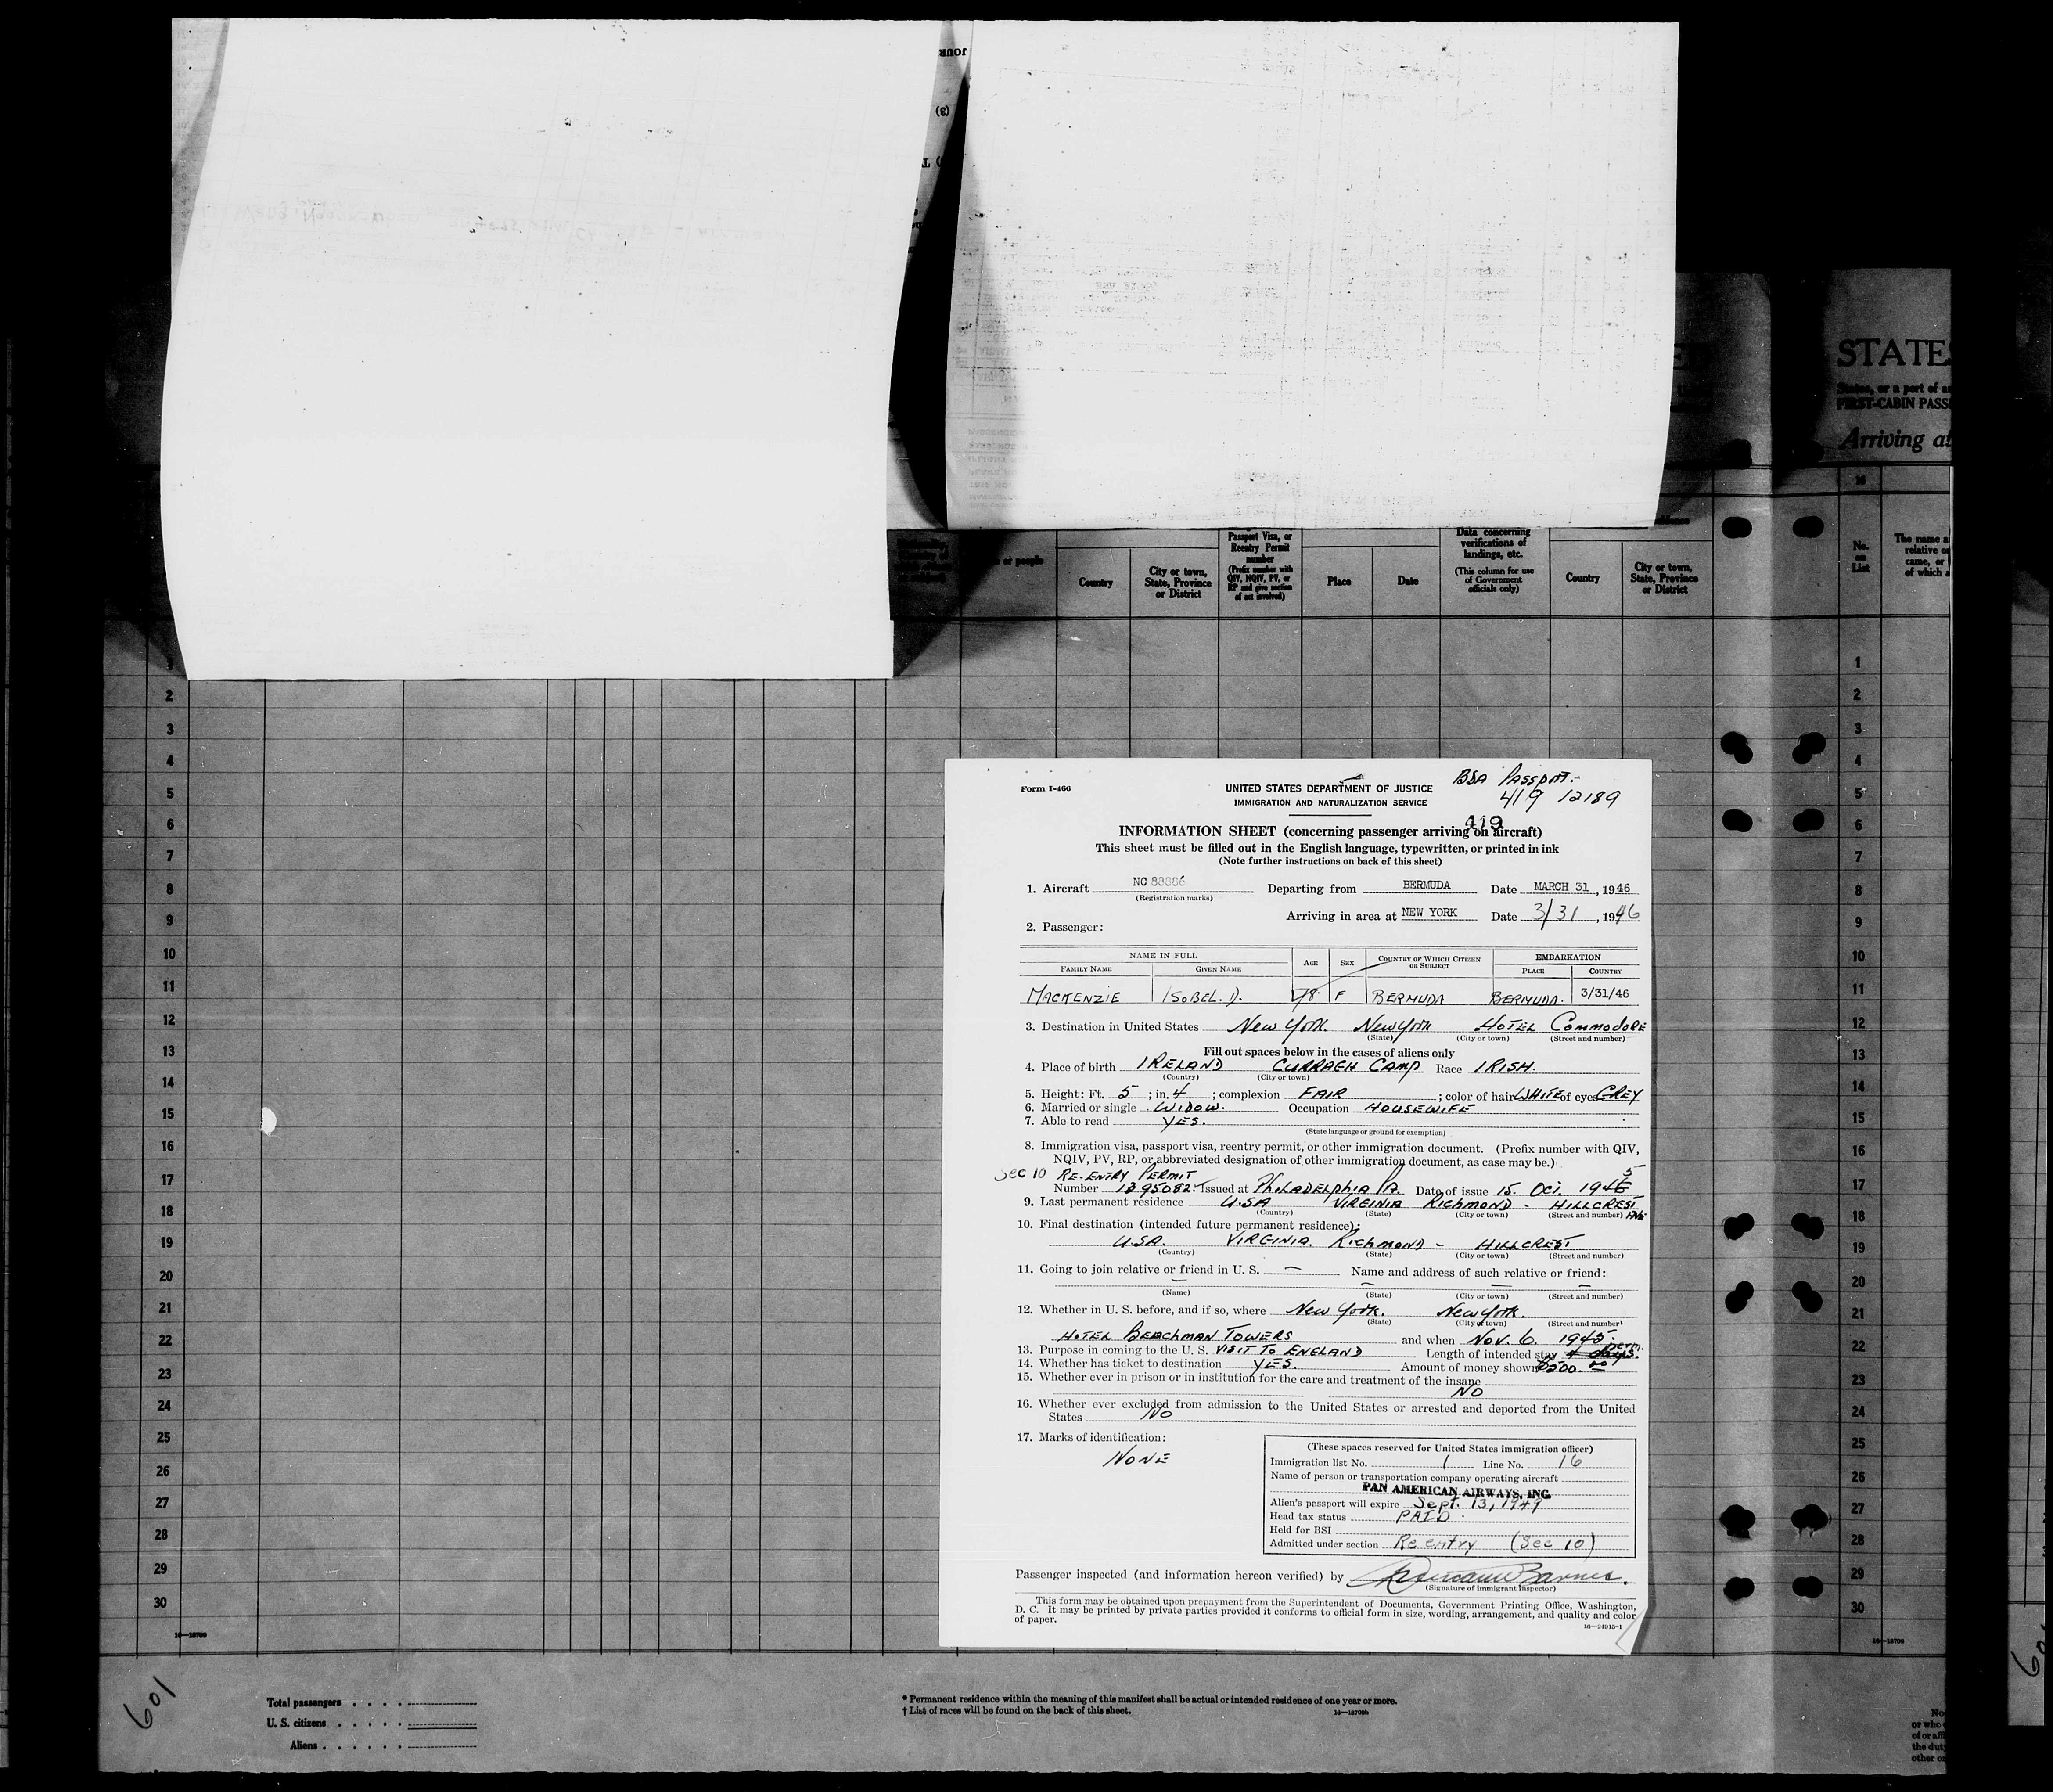 JOUR
(3)
STATES
States, or a part of an
FIRST-CABIN PASS
Arriving at
or people
Country
City or town, State, Province or District
Passport Visa, or Reentry Permit number
(Prefix number with QIV, NQIV, PV, or RP and give section of act involved)
Place
Date
Data concerning verifications of landings, etc.
(This column for use of Government officials only)
Country
City or town, State, Province or District
No. on List
The name a
relative or
came, or
of which a
1
2
3
4
5
6
7
8
9
10
11
12
13
14
15
16
17
18
19
20
21
22
23
24
25
26
27
28
29
30
16—18709
Form I-466
UNITED STATES DEPARTMENT OF JUSTICE
IMMIGRATION AND NATURALIZATION SERVICE
BDA PASSPORT.
419 12189
419
INFORMATION SHEET (concerning passenger arriving on aircraft)
This sheet must be filled out in the English language, typewritten, or printed in ink
(Note further instructions on back of this sheet)
1. Aircraft NC 88886 Departing from BERMUDA Date MARCH 31, 1946
(Registration marks)
Arriving in area at NEW YORK Date 3/31, 1946
2. Passenger:
NAME IN FULL AGE SEX COUNTRY OF WHICH CITIZEN OR SUBJECT EMBARKATION
FAMILY NAME GIVEN NAME PLACE COUNTRY
MACKENZIE ISOBEL. D. 78 F BERMUDA BERMUDA. 3/31/46
3. Destination in United States New York New York HOTEL COMMODORE
(State) (City or town) (Street and number)
Fill out spaces below in the cases of aliens only
4. Place of birth IRELAND CURRAGH CAMP Race IRISH.
(Country) (City or town)
5. Height: Ft. 5; in. 4; complexion FAIR; color of hair WHITE of eyes GREY
6. Married or single WIDOW. Occupation HOUSEWIFE
7. Able to read YES.
(State language or ground for exemption)
8. Immigration visa, passport visa, reentry permit, or other immigration document. (Prefix number with QIV,
NQIV, PV, RP, or abbreviated designation of other immigration document, as case may be.)
Sec 10 RE-ENTRY PERMIT 5
Number 1395082. Issued at PHILADELPHIA PA. Date of issue 15. OCT. 1946
9. Last permanent residence U.S.A VIRGINIA RICHMOND - HILLCREST AVE
(Country) (State) (City or town) (Street and number)
10. Final destination (intended future permanent residence):
U.S.A. VIRGINIA. RICHMOND - HILLCREST
(Country) (State) (City or town) (Street and number)
11. Going to join relative or friend in U. S. — Name and address of such relative or friend:
— — — —
(Name) (State) (City or town) (Street and number)
12. Whether in U. S. before, and if so, where New York. New York.
(State) (City or town) (Street and number)
HOTEL BEACHMAN TOWERS and when Nov. 6. 1945.
13. Purpose in coming to the U. S. VISIT TO ENGLAND Length of intended stay 4 days. Perm.
14. Whether has ticket to destination YES. Amount of money shown $200.00
15. Whether ever in prison or in institution for the care and treatment of the insane
NO
16. Whether ever excluded from admission to the United States or arrested and deported from the United
States NO
17. Marks of identification:
NONE
(These spaces reserved for United States immigration officer)
Immigration list No. 1 Line No. 16
Name of person or transportation company operating aircraft
PAN AMERICAN AIRWAYS, INC.
Alien's passport will expire Sept. 13, 1949
Head tax status PAID.
Held for BSI
Admitted under section Re entry (Sec 10)
Passenger inspected (and information hereon verified) by
(Signature of Immigrant Inspector)
This form may be obtained upon prepayment from the Superintendent of Documents, Government Printing Office, Washington,
D. C. It may be printed by private parties provided it conforms to official form in size, wording, arrangement, and quality and color
of paper.
16—24915-1
601
Total passengers
U. S. citizens
Aliens
* Permanent residence within the meaning of this manifest shall be actual or intended residence of one year or more.
† List of races will be found on the back of this sheet.
16—18709b
16—18709
No
or who
of or affi
the duty
other or